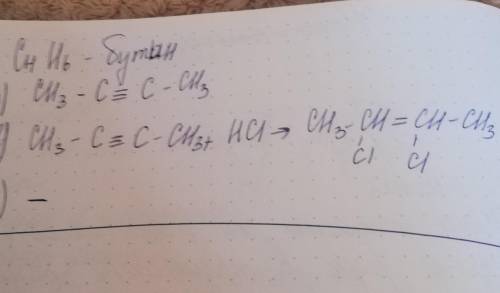 C4H6 - бутин
) CH3 - C ≡ C - CH3
) CH3 - C ≡ C - CH3 + HCl → CH3 - CH = CH - CH3
Cl Cl
) —